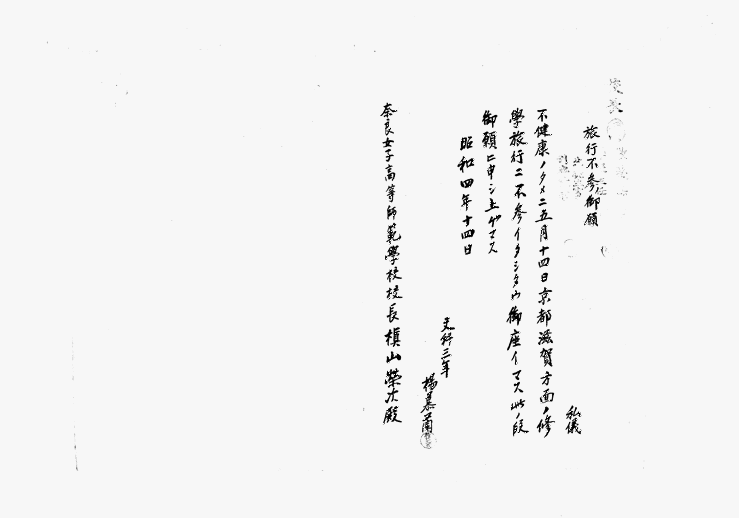 旅行不参御願
私儀
不健康ノタメ二五月十四日京都滋賀方面ノ修
學旅行ニ不參イタシタウ御座イマス此ノ段
御願ヒ申シ上ゲマス
昭和四年十四日
文科三年
楊慕蘭
奈良女子高等師範學校校長槙山榮次殿